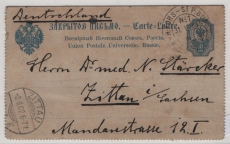 Deutschland
ЗАКРЫТОЕ ПИСЬМО. — Carte-Lettre.
Всемірный Почтовый Союзъ. Россія.
Union Postale Universelle. Russie.
Herrn Dr med N. Stärcker
Zittau i/Sachsen
Mandaustrasse 12 I.
ZITTAU